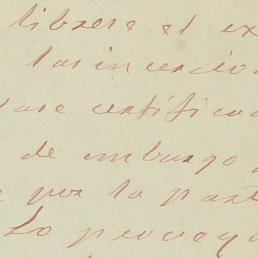 librese el ex
las incercio
dase certifica
de embargo
por la part
Lo proveyo